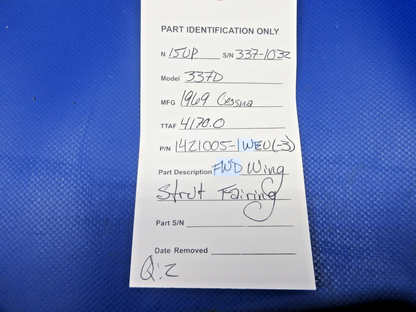 PART IDENTIFICATION ONLY
N 15UP S/N 337-1032
Model 337D
MFG 1969 Cessna
TTAF 4170.0
P/N 1421005-1WEU(-3)
Part Description FWD Wing
Strut Fairing
Part S/N
Date Removed
Q:2